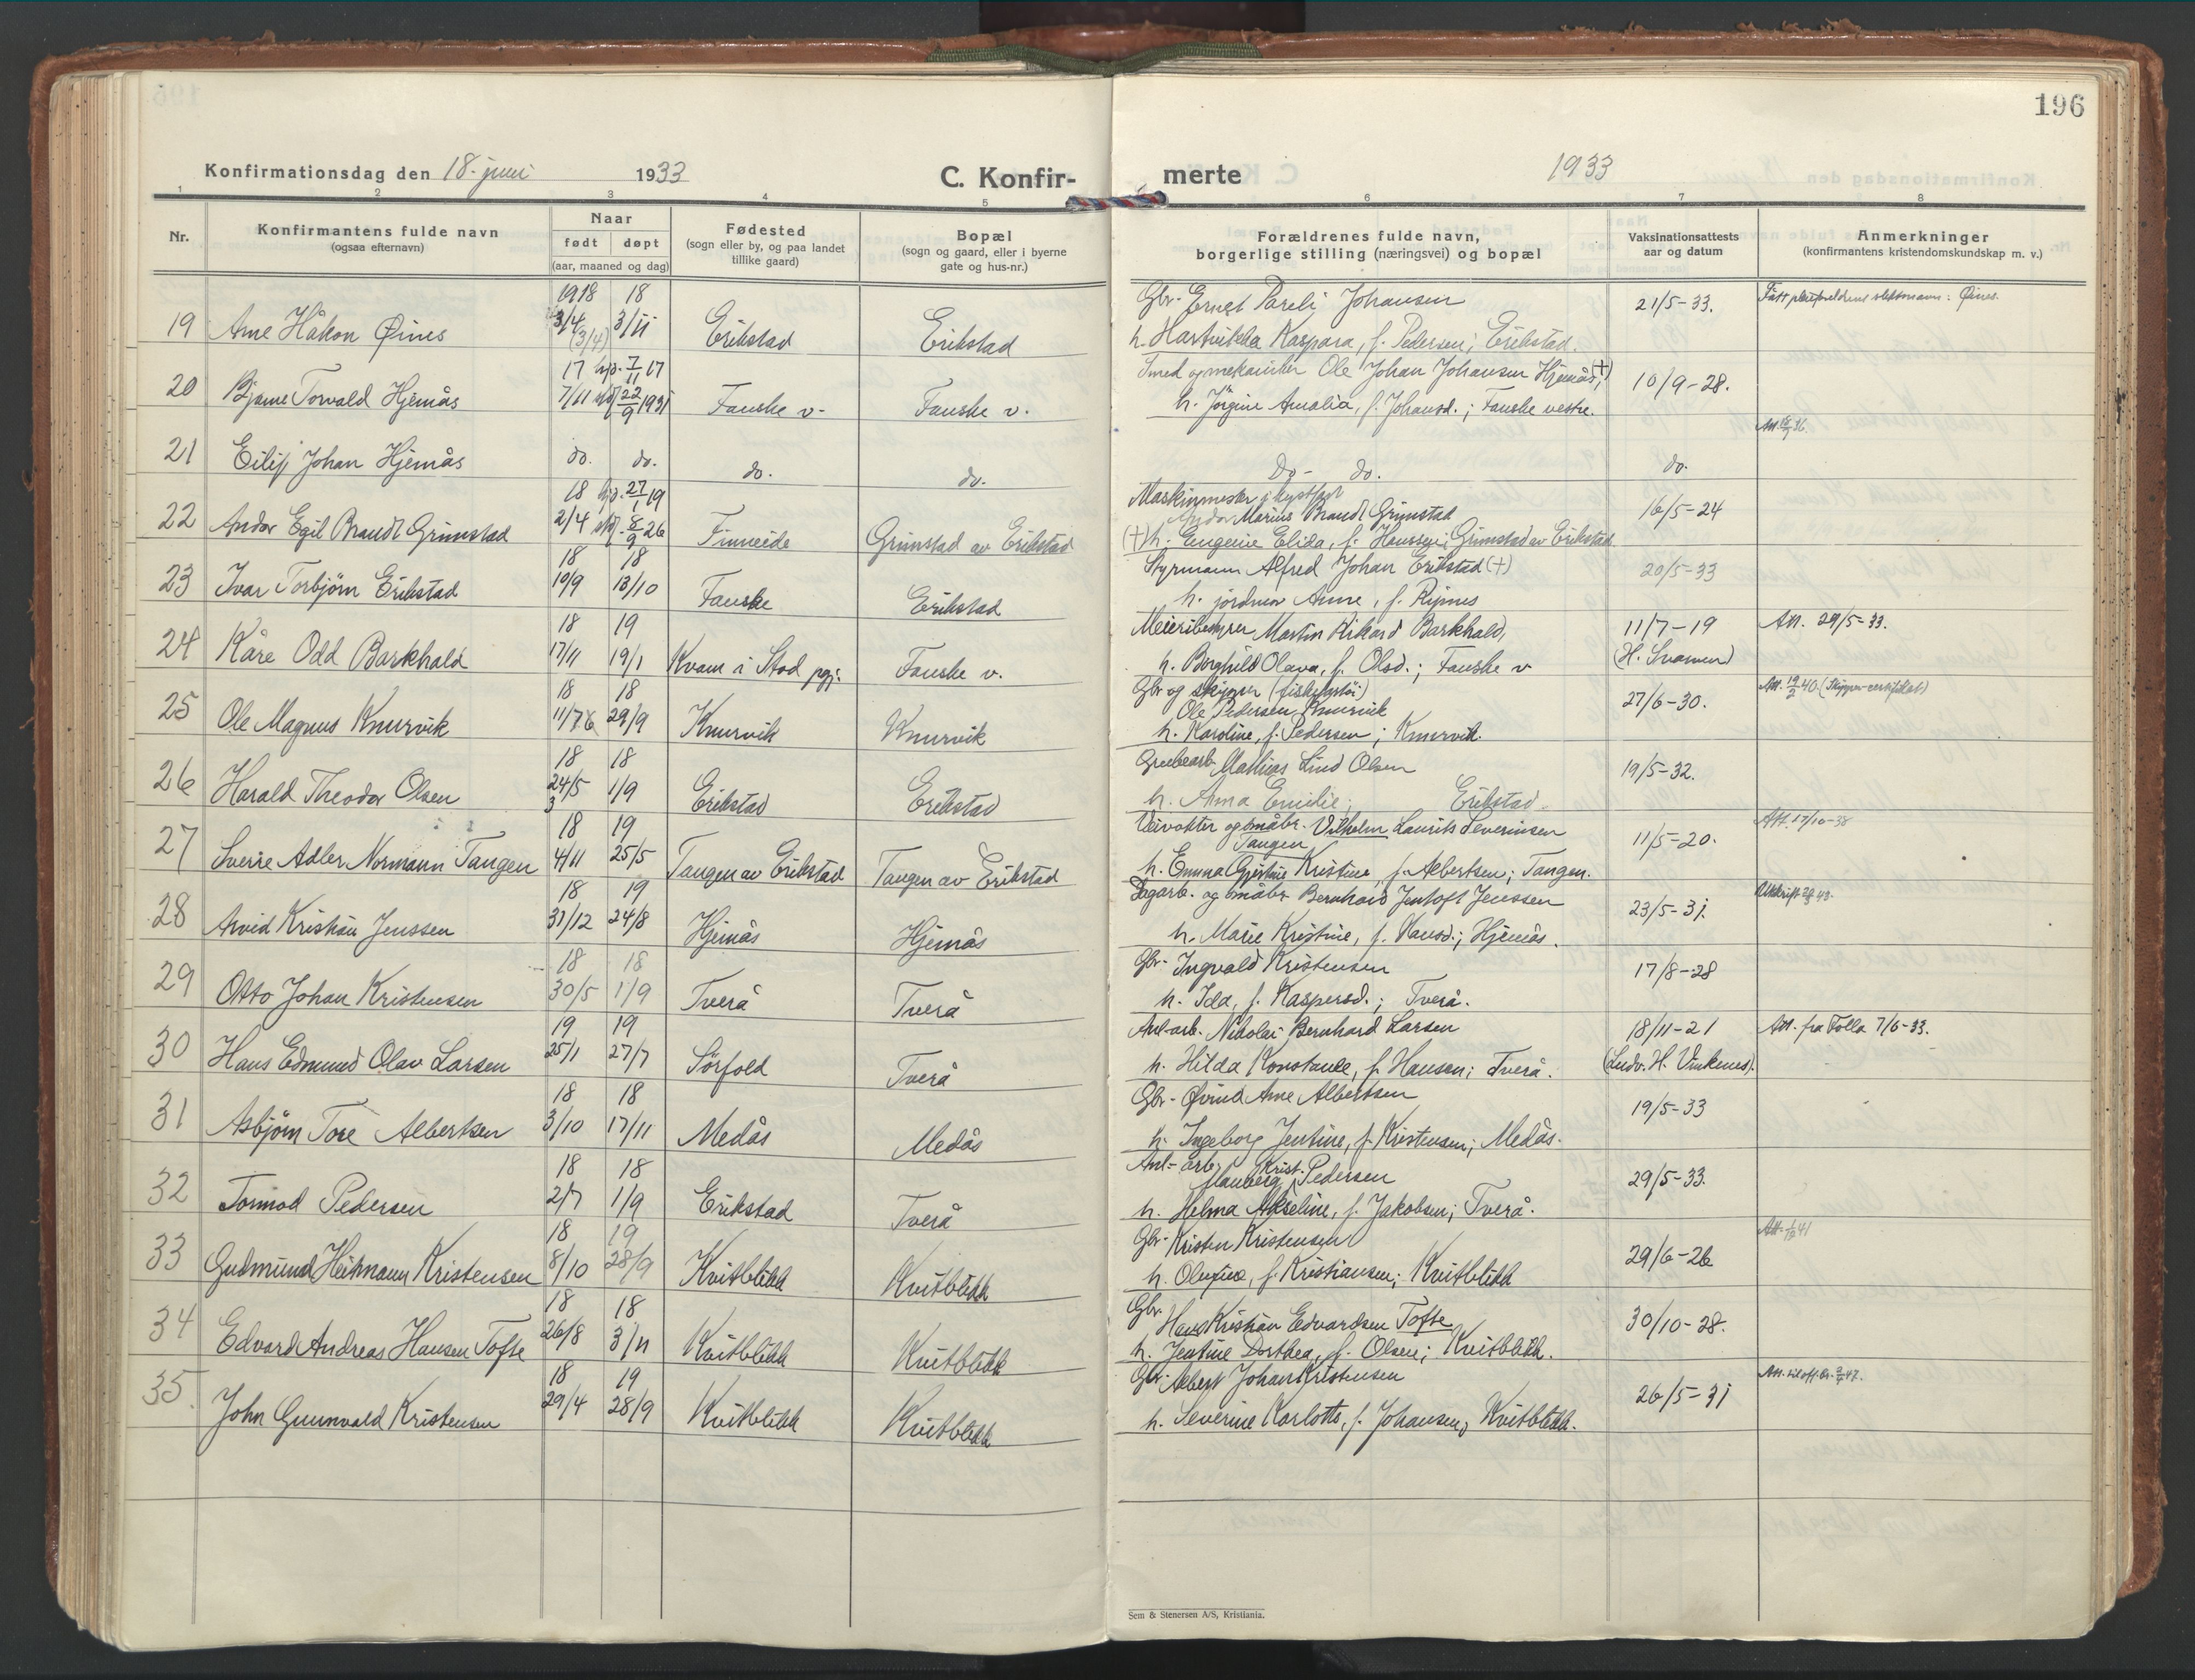 196
Konfirmationsdag den 18. juni 1933
C. Konfir-
merte
1933
1 2 3 4 5 6 7 8
Nr.
Konfirmantens fulde navn
(ogsaa efternavn)
Naar
født døpt
(aar, maaned og dag)
Fødested
(sogn eller by, og paa landet
tillike gaard)
Bopæl
(sogn og gaard, eller i byerne
gate og hus-nr.)
Forældrenes fulde navn,
borgerlige stilling (næringsvei) og bopæl
Vaksinationsattests
aar og datum
Anmerkninger
(konfirmantens kristendomskundskap m. v.)
1918 18 Gbr. Ernst Pareli Johansen 21/5-33. Øines.
19 Arne Håkon Øines 3/4 (3/4) 3/11 Erikstad Erikstad
h. Hartvikka Kaspara, f. Pedersen; Erikstad.
17 hjd. 7/11 17 Smed og mekaniker Ole Johan Johansen Hjemås, (+) 10/9-28.
20 Bjarne Torvald Hjemås 7/11 stf. 22/9 1931 Fauske v. Fauske v.
h. Jörgine Amalia, f. Johansd.; Fauske vestre.
21 Eilif Johan Hjemås do. do. do. do. Do- do. do.
18 hjd. 27/1 19 Maskinmester i kystfart
Andor Marius Brandt Grimstad 16/5-24
22 Andor Egil Brandt Grimstad 2/4 stf. 8/9 26 Finneide Grimstad av Erikstad
(+) h. Eugenie Elida, f. Hanssen; Grimstad av Erikstad
18 18 Styrmann Alfred Johan Erikstad (+) 20/5-33
23 Ivar Torbjörn Erikstad 10/9 13/10 Fauske Erikstad
h. jordmor Anne, f. Ripnes
18 19 Meieribestyrer Martin Rikard Barkhald, 11/7-19 Att. 29/5-33.
24 Kåre Odd Barkhald 17/11 19/1 Kvam i Stod pgj. Fauske v.
h. Borghild Olava, f. Olsd.; Fauske v
18 18 Gbr og skipper (fiskefartöi)
Ole Pedersen Knurvik 27/6-30. Att. 19/2 40. (Skipper-certifikat)
25 Ole Magnus Knurvik 11/7 29/9 Knurvik Knurvik
h. Karoline, f. Pedersen; Knurvik.
18 18 Grubearb. Mathias Lind Olsen 19/5-32.
26 Harald Theodor Olsen 24/5 1/9 Erikstad Erikstad
h. Anna Emilie; Erikstad.
18 19 Veivokter og småbr. Vilhelm Laurits Severinsen
Tangen 11/5-20. Att. 17/10-38
27 Sverre Adler Normann Tangen 4/11 25/5 Tangen av Erikstad Tangen av Erikstad
h. Emma Gjertine Kristine, f. Albertsen; Tangen.
18 19 Dagarb. og småbr. Bernhard Jentoft Jenssen 23/5-31.
28 Arvid Kristian Jenssen 31/12 24/8 Hjemås Hjemås
h. Marie Kristine, f. Hansd.; Hjemås.
18 18 Gbr. Ingvald Kristensen 17/8-28
29 Otto Johan Kristensen 30/5 1/9 Tverå Tverå
h. Ida, f. Kaspersd.; Tverå.
19 19 Anl-arb. Nikolai Bernhard Larsen 18/11-21 Att. fra Folla 7/6-33.
30 Hans Edmund Olav Larsen 25/1 27/7 Sörfold Tverå
h. Hilda Konstanse, f. Hansen; Tverå.
18 18 Gbr. Øivind Arne Albertsen 19/5-33
31 Asbjörn Tore Albertsen 3/10 17/11 Medås Medås
h. Ingeborg Jentine, f. Kristensen; Medås.
18 18 Anl-arb. Krist. Pedersen 29/5-33.
32 Tormod Pedersen 2/7 1/9 Erikstad Tverå
h. Helma Akseline, f. Jakobsen; Tverå.
18 19 Gbr. Kristen Kristensen 29/6-26
33 Gudmund Heitmann Kristensen 8/10 28/9 Kvitblikk Kvitblikk
h. Olufine, f. Kristiansen; Kvitblikk
18 18 Gbr.
Hans Kristian Edvardsen Tofte 30/10-28.
34 Edvard Andreas Hansen Tofte 26/8 3/11 Kvitblikk Kvitblikk
h. Jentine Dorthea, f. Olsen; Kvitblikk.
18 19 Gbr. Albert Johan Kristensen 26/5-31
35. John Gunnvald Kristensen 29/4 28/9 Kvitblikk Kvitblikk
h. Severine Karlotte, f. Johansen, Kvitblikk.
Sem & Stenersen A/S, Kristiania.